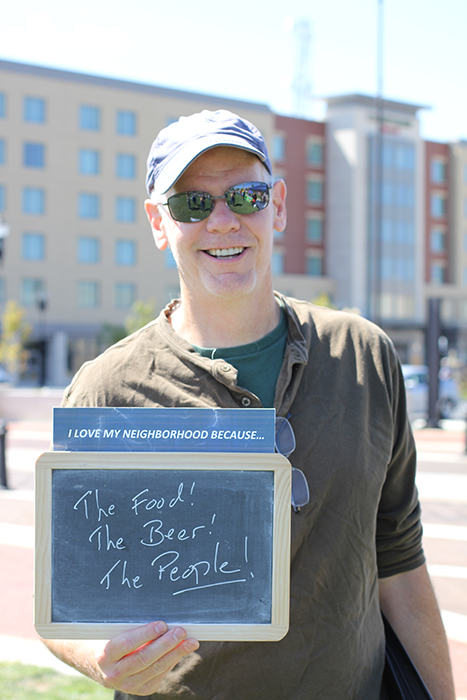 I LOVE MY NEIGHBORHOOD BECAUSE...
The Food!
The Beer!
The People!